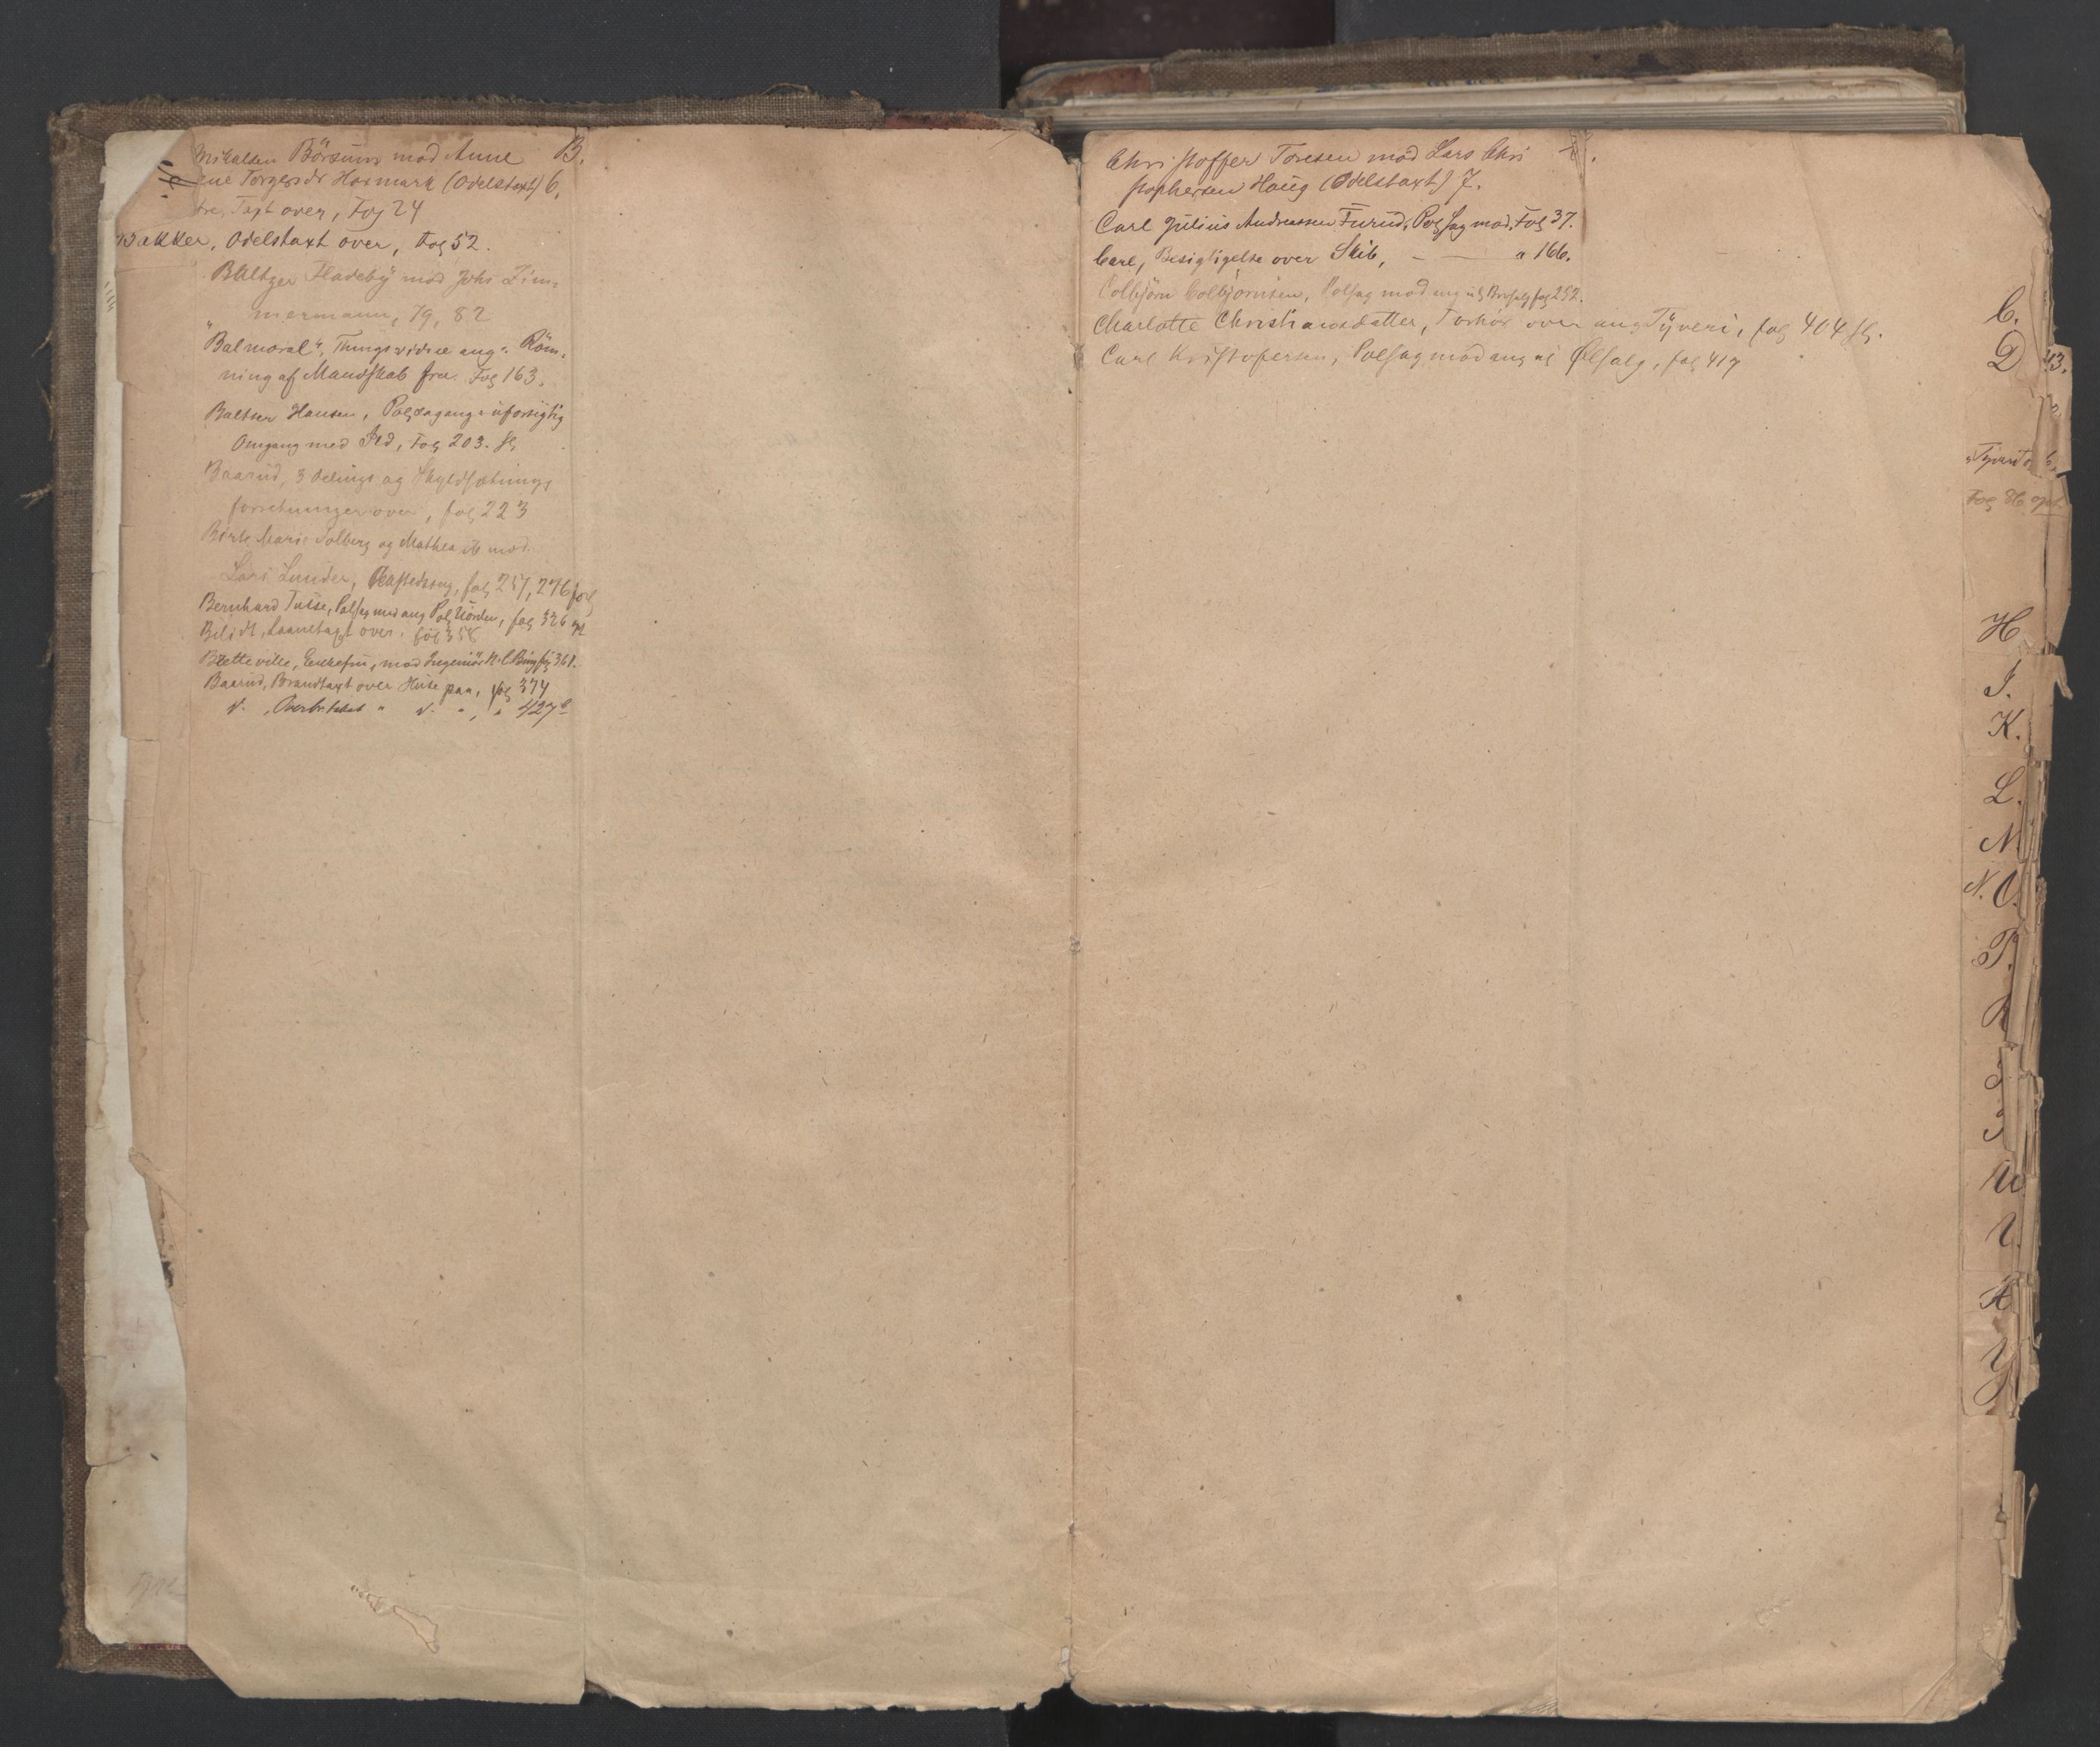 Mikalsen Börsum mod Anne B.
ene Torgersdr Haxmark (Odelstaxt) 6,
tre, Taxt over, Fol 24
Bakker, Odelstaxt over, Fol 52.
Baltzer Fladeby mod Johs Zim-
mermann, 79, 82
"Balmoral", Thingsvidne angde Röm-
ning af Mandskab fra. Fol 163.
Baltser Hansen, Polsag angde uforsigtig
Omgang med Ild, Fol 203. fl
Baarud, 3 Delings og Skyldsætnings
forretninger over, fol 223
Birte Marie Solberg og Mathea mod
Lars Lunder, fol 257, 276
Bernhard Tusse, Polsag mod ang Pol Uorden, fol 326
Bilidt, Laanetaxt over. fol 358
Bretteville, Enkefru, mod Ingeniör N. C. Bing fol 361.
Baarud, Brandtaxt over Huse paa, fol 374
d. , Overbr.takst " d. " , " 427
Christoffer Toresen mod Lars Chri
stophersen Haug (Odelstaxt) 7.
Carl Julius Andreassen Furud, Pol Sag mod, Fol 37.
Carl, Besigtigelse over Skib, — — " 166.
Colbjörn Colbjörnsen, Polsag mod ang ul Brsalg fol 252.
Charlotte Christiansdatter, Forhör over ang Tyveri, fol 404 fl.
Carl Kristofersen, Polsag mod ang ul Ølsalg, fol 417
C.
D
H
I.
K.
L.
M
N. O.
P.
R
S
T
U
V.
Æ
Y